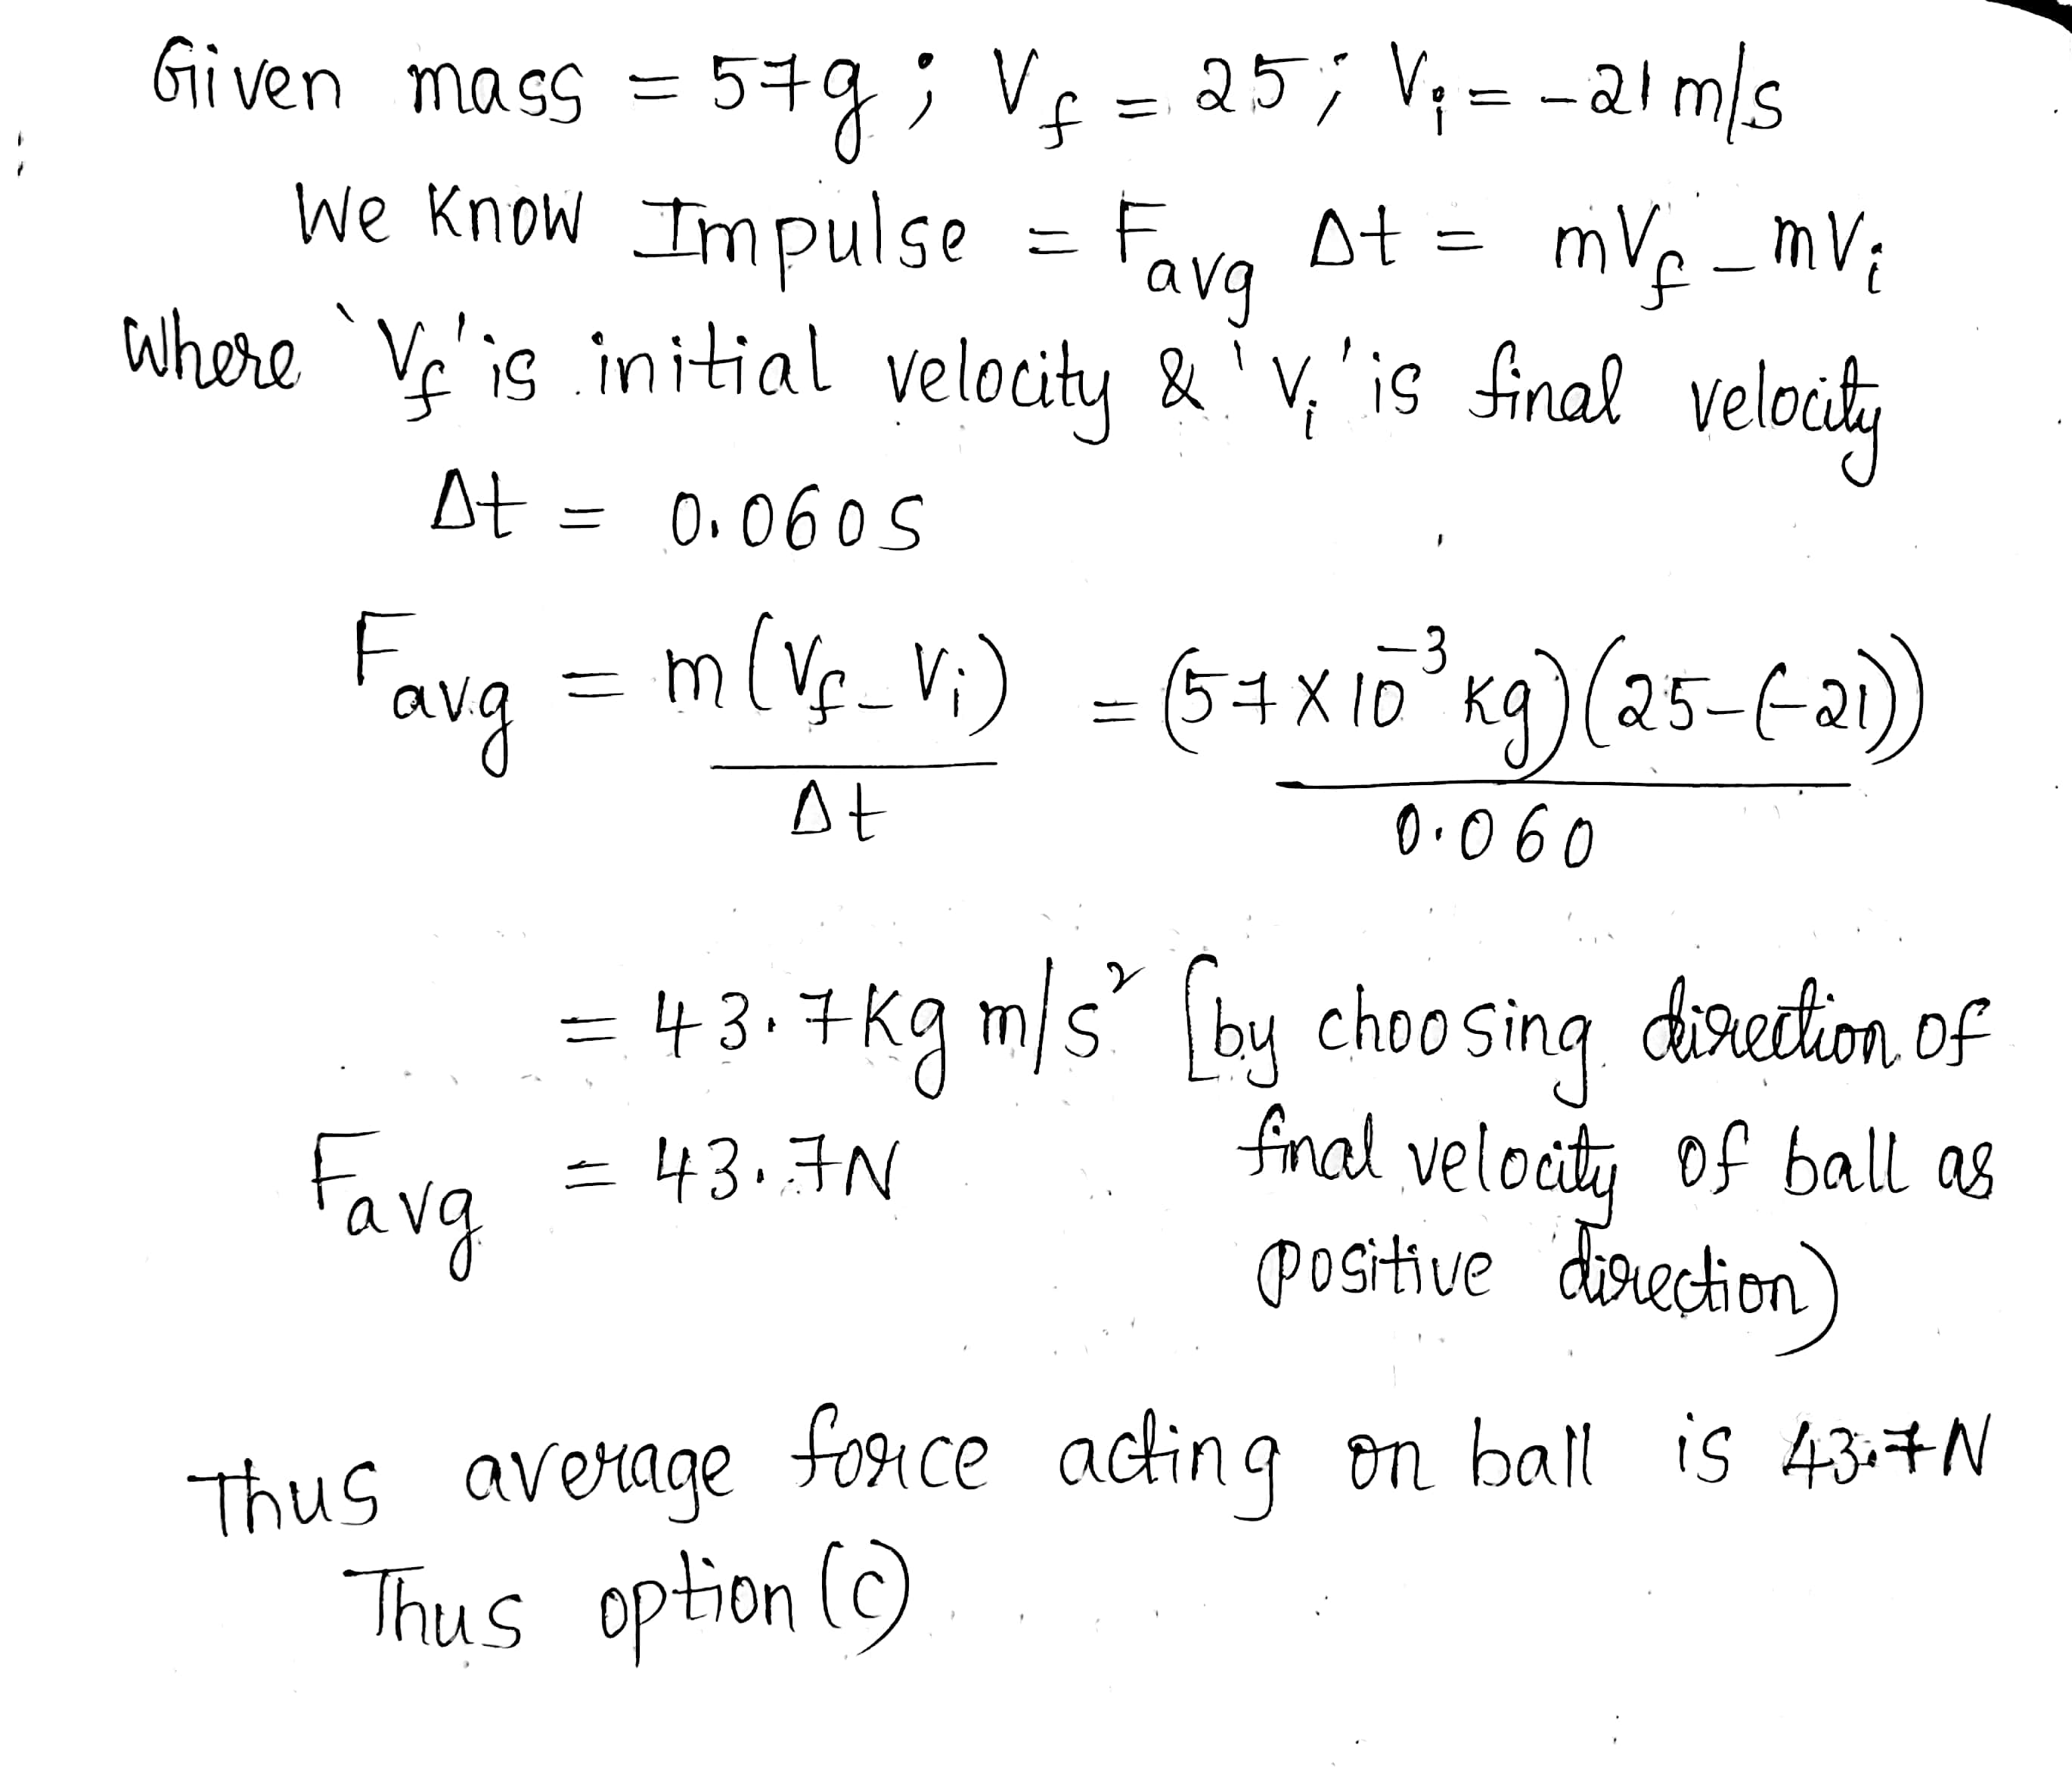 Given mass = 57g ; Vf = 25 ; Vi = -21 m/s
We Know Impulse = Favg Δt = mVf - mVi
Where 'Vf' is initial velocity & 'Vi' is final velocity
Δt = 0.060s
Favg = m(Vf - Vi)/Δt = (57 × 10⁻³ Kg)(25-(-21))/0.060
= 43.7 Kg m/s² [by choosing direction of
Favg = 43.7N final velocity of ball as
positive direction)
Thus average force acting on ball is 43.7N
Thus option (c)